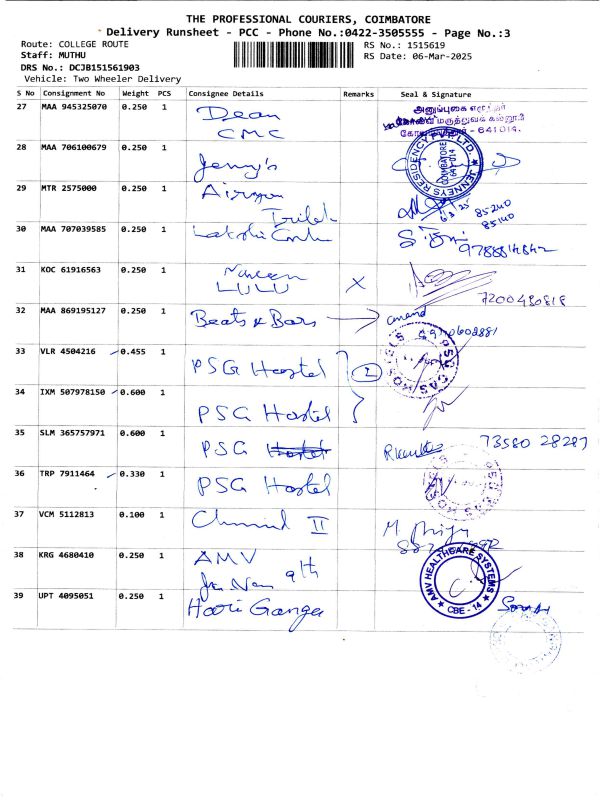 THE PROFESSIONAL COURIERS, COIMBATORE
Delivery Runsheet - PCC - Phone No.:0422-3505555 - Page No.:3
Route: COLLEGE ROUTE
RS No.: 1515619
Staff: MUTHU
RS Date: 06-Mar-2025
DRS No.: DCJB151561903
Vehicle: Two Wheeler Delivery
S No Consignment No Weight PCS Consignee Details Remarks Seal & Signature
27 MAA 945325070 0.250 1 Dean
CMC
அனுப்புகை
கோ - 641014.
28 MAA 706100679 0.250 1 Jenny's
JENNEYS RESIDENCY PVT LTD.
COIMBATORE
641 014
29 MTR 2575000 0.250 1
85240
85140
30 MAA 707039585 0.250 1
31 KOC 61916563 0.250 1 Naveen
LULU X
7200480818
32 MAA 869195127 0.250 1 Beats & Bars
anand
33 VLR 4504216 0.455 1 PSG Hostel 2
PSG CAS HOSTELS
34 IXM 507978150 0.600 1 PSG Hostel
35 SLM 365757971 0.600 1 PSG Hostel
73580 28287
36 TRP 7911464 0.330 1 PSG Hostel
PSG CAS HOSTELS
37 VCM 5112813 0.100 1 II
38 KRG 4680410 0.250 1 AMV
9th
AMV HEALTHCARE SYSTEMS
CBE - 14
39 UPT 4095051 0.250 1 Hari Ganga